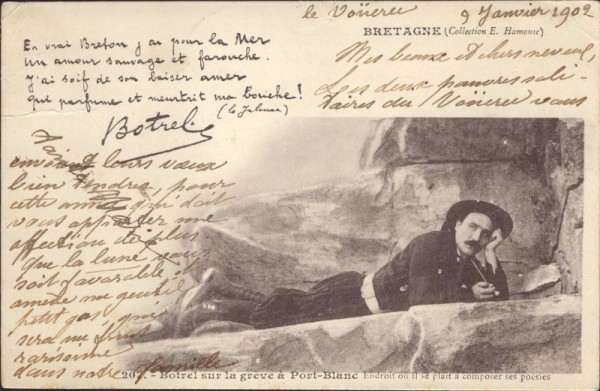 le Voüereu 9 Janvier 1902
BRETAGNE (Collection E. Hamonic)
En vrai Breton j'ai pour la Mer
Un amour sauvage et farouche.
J'ai soif de son baiser amer
qui parfume et meurtrit ma bouche!
(la Jalouse)
Botrel
Mes beaux et chers neveux,
Les deux pauvres soli-
taires du Voüereu vous
envoient leurs vœux
bien tendres, pour
cette année qui doit
vous apporter une
affection de plus
que la lune vous
soit favorable et
amène un gentil
petit gas, qui
sera une
dans notre famille
207. - Botrel sur la grève à Port-Blanc Endroit où il se plaît à composer ses poésies